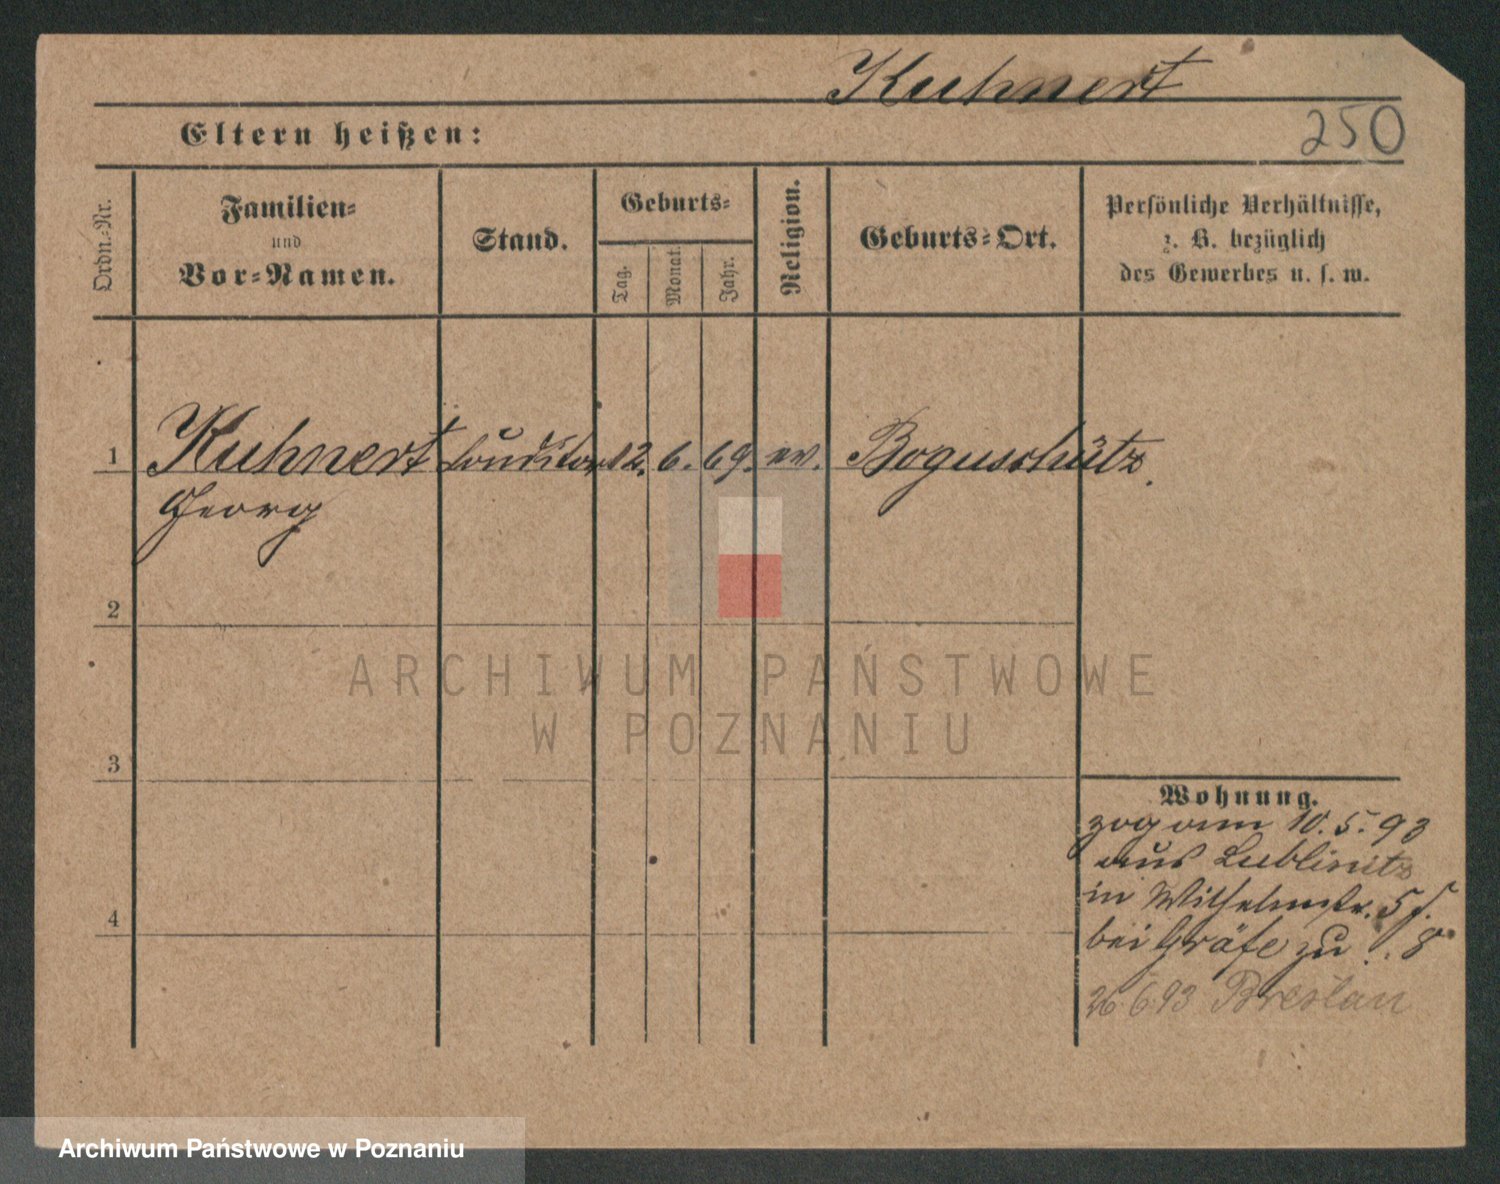 Kuhnert
250
Eltern heißen:
Ordn.-Nr.
Familien-
und
Vor-Namen.
Stand.
Geburts-
Tag.
Monat.
Jahr.
Religion.
Geburts-Ort.
Persönliche Verhältnisse,
z. B. bezüglich
des Gewerbes u. s. w.
1 Kuhnert Conditor 12. 6. 69. ev. Boguschütz.
Georg
2
ARCHIWUM PAŃSTWOWE
W POZNANIU
3
Wohnung.
zog am 10. 5. 93
aus Lublinitz
in Wilhelmstr. 5
bei Gräfe zu. 8
4
26 6.93 Breslau
Archiwum Państwowe w Poznaniu